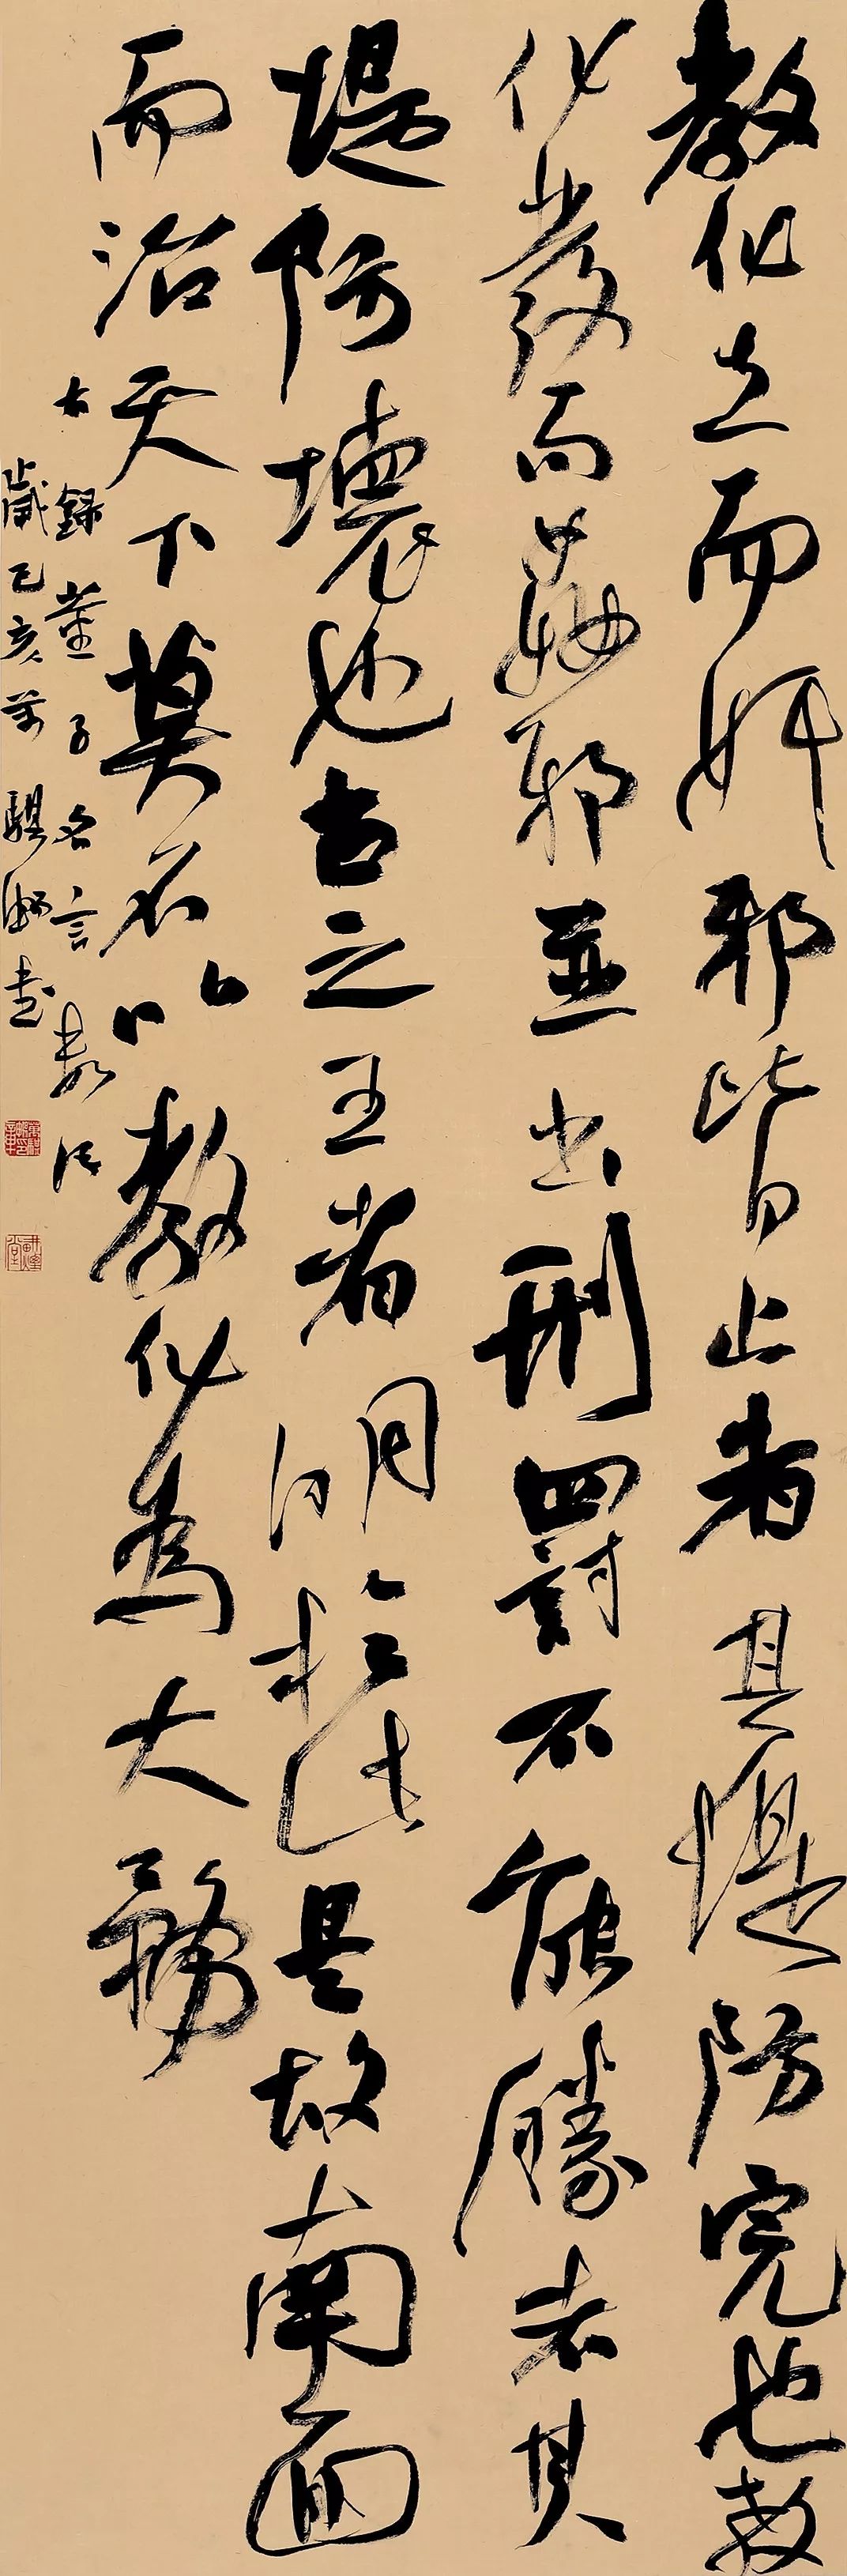 教化立而奸邪皆止者其堤防完也教
化發而姦邪並出刑罰不能勝者其
堤防壞也古之王者明於此是故南面
而治天下莫不以教化為大務
右錄董子名言數行
歲己亥萬騏書